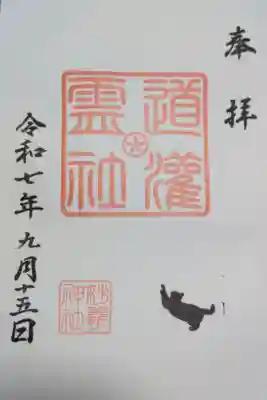 奉拝
道灌
霊社
神社
令和七年 九月十五日